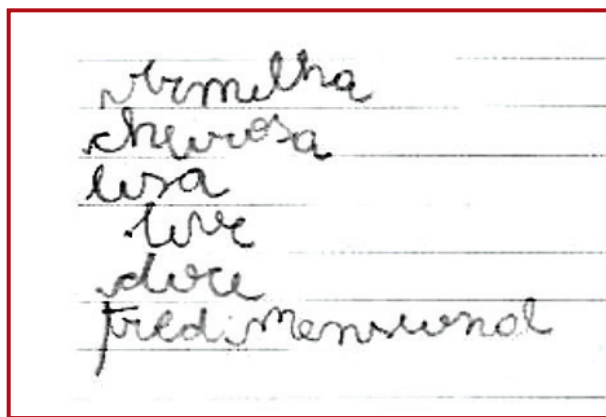 vermelha
cheirosa
lisa
leve
doce
tredimensional